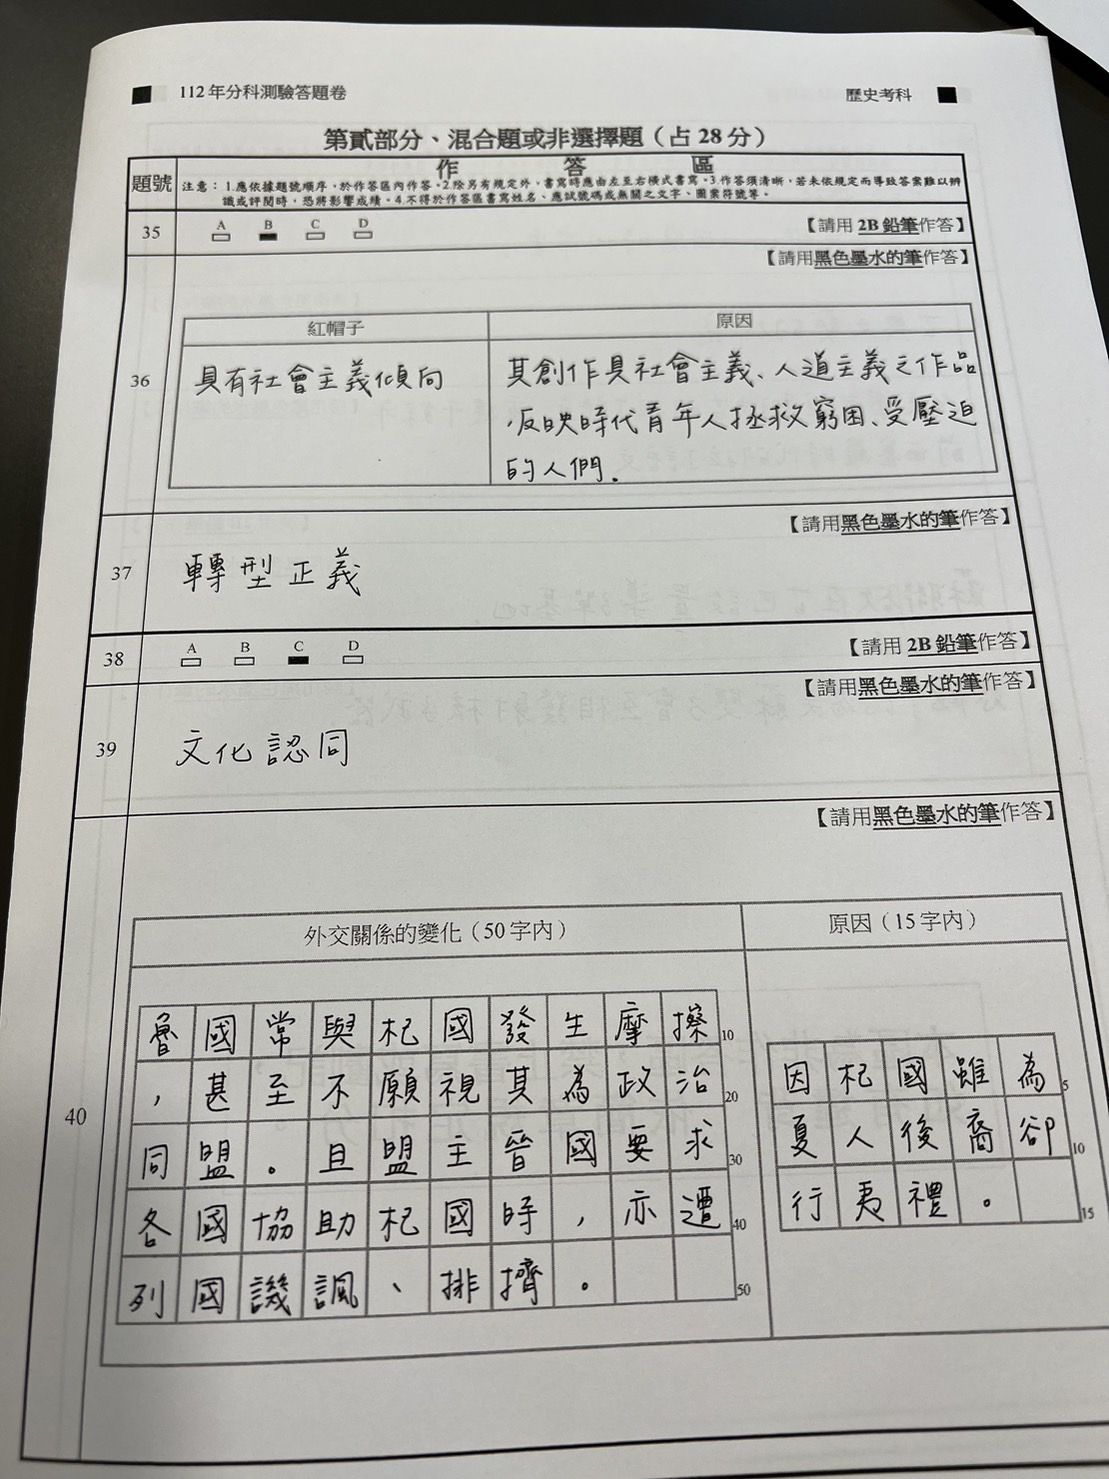 112年分科測驗答題卷
歷史考科
第貳部分、混合題或非選擇題（占 28 分）
題號
作答區
注意：1.應依據題號順序，於作答區內作答。2.除另有規定外，書寫時應由左至右橫式書寫。3.作答須清晰，若未依規定而導致答案難以辨
識或評閱時，恐將影響成績。4.不得於作答區書寫姓名、應試號碼或無關之文字、圖案符號等。
35
A B C D
【請用 2B 鉛筆作答】
36
【請用黑色墨水的筆作答】
紅帽子
原因
具有社會主義傾向
其創作具社會主義、人道主義之作品
,反映時代青年人拯救窮困、受壓迫
的人們.
37
【請用黑色墨水的筆作答】
轉型正義
38
A B C D
【請用 2B 鉛筆作答】
39
【請用黑色墨水的筆作答】
文化認同
40
【請用黑色墨水的筆作答】
外交關係的變化（50 字內）
魯國常與杞國發生摩擦 10
，甚至不願視其為政治 20
同盟。且盟主晉國要求 30
各國協助杞國時，亦遭 40
列國譏諷、排擠。 50
原因（15 字內）
因杞國雖為 5
夏人後裔卻 10
行夷禮。 15